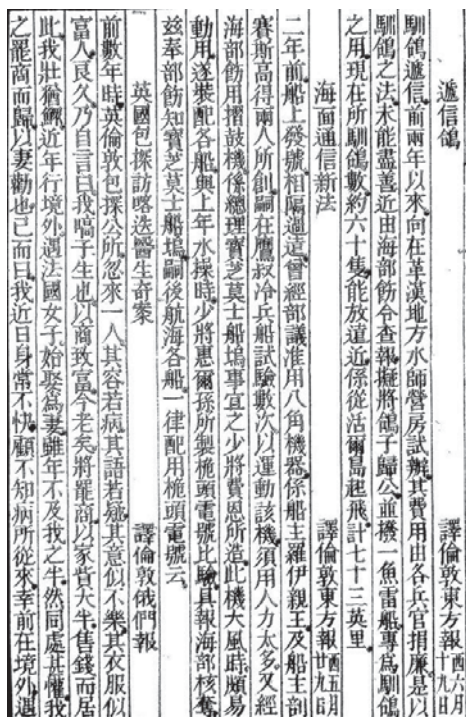 遞信鴿　譯倫敦東方報　酉六月十九日
馴鴿遞信前兩年以來向在革漢地方水師營房試辦其費用由各兵官捐廉是以
馴鴿之法未能盡善近由海部飭令查報擬將鴿子歸公並撥一魚雷船專爲馴鴿
之用現在所馴鴿數約六十隻能放遠近係從活爾島起飛計七十二英里
海面通信新法　譯倫敦東方報　酉五月廿九日
二年前船上發號相隔過遠曾經部議准用八角機器係船主羅伊親王及船主剖
賽斯高得兩人所創嗣在鷹叔冷兵船試驗數次以運動該機須用人力太多又經
海部飭用摺鼓機係總理寶芝莫士船塢事宜之少將費恩所造此機大風時頗易
動用遂裝配各船與上年水操時少將惠爾孫所製桅頭電號比驗具報海部核奪
茲奉部飭知寶芝莫士船塢嗣後航海各船一律配用桅頭電號云
英國包探訪喀迭醫生奇案　譯倫敦俄們報
前數年時英倫敦包探公所忽來一人其容若病其語若癡其意似不樂其衣服似
富人良久乃自言曰我嗃子生也以商致富今老矣將罷商以家貲大半售錢而居
此我壯猶鰥近年行境外遇法國女子始娶爲妻雖年不及我之半然同處甚懽我
之罷商而歸以妻勸也已而曰我近日身常不快顧不知病所從來幸前在境外遇